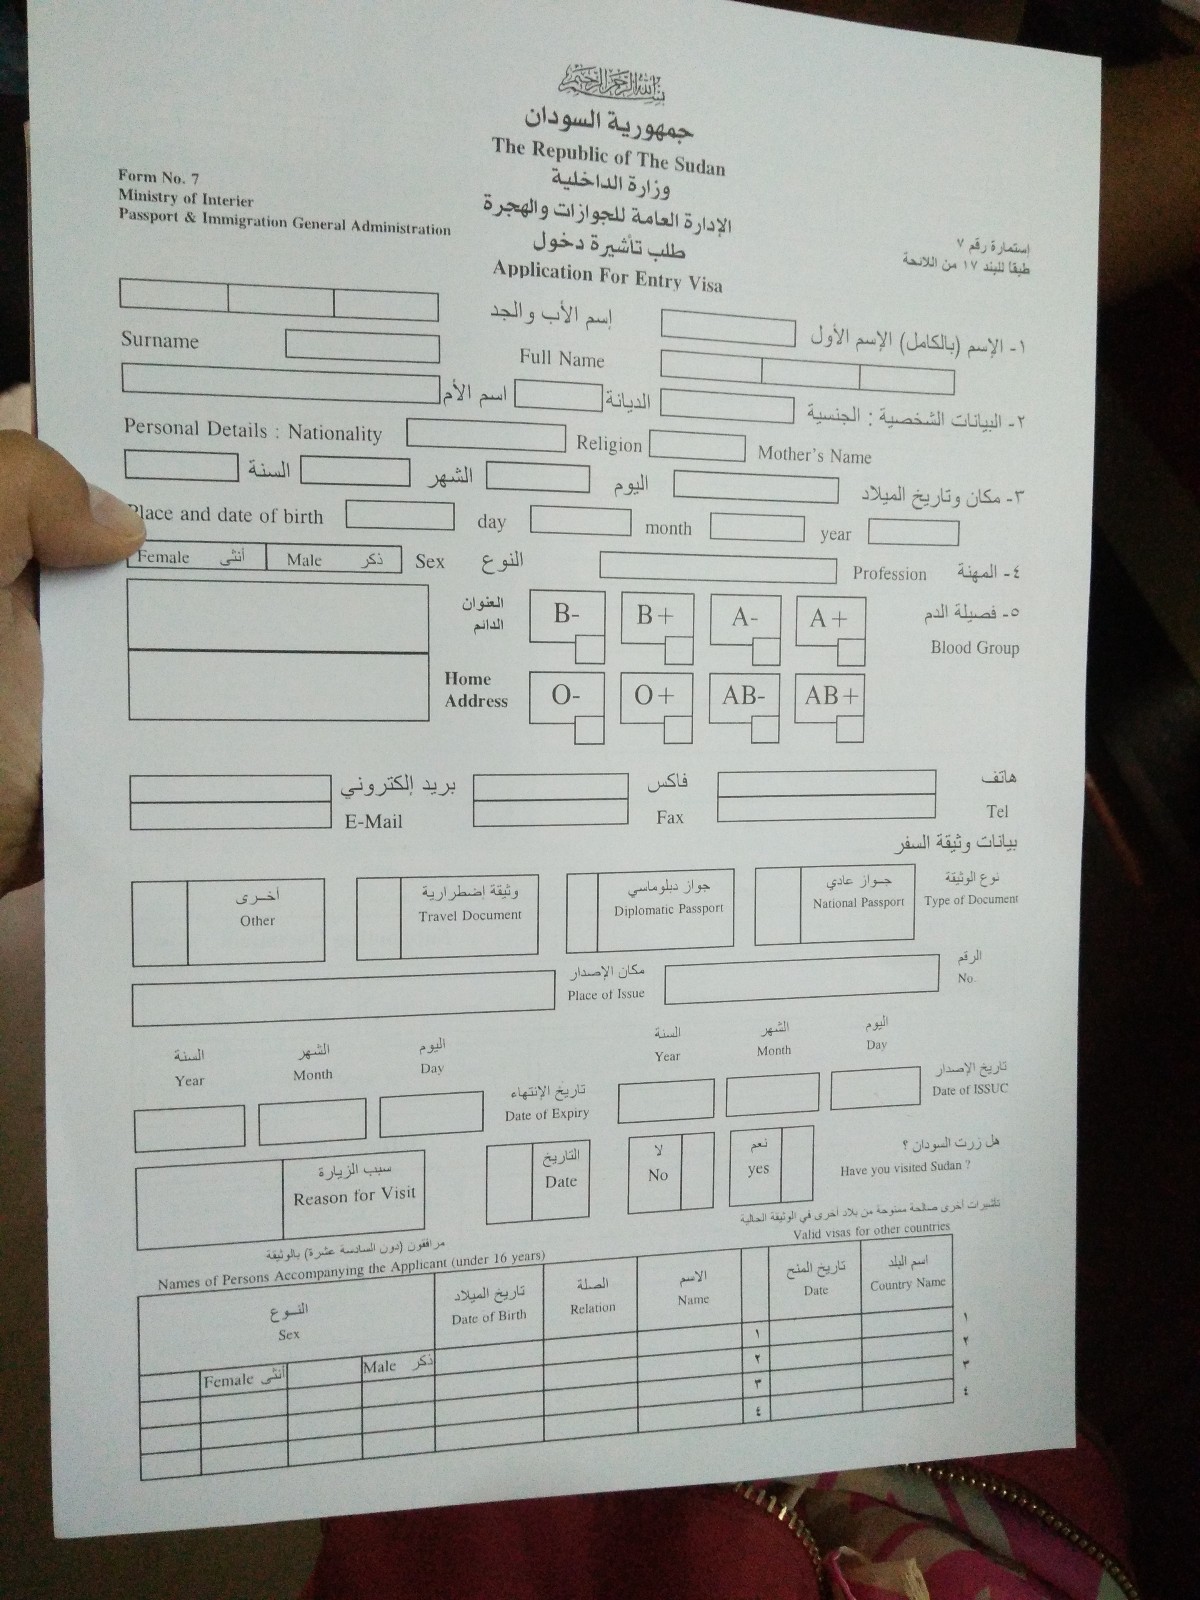 بسم الله الرحمن الرحيم
جمهورية السودان
The Republic of The Sudan
وزارة الداخلية
الإدارة العامة للجوازات والهجرة
طلب تأشيرة دخول
Application For Entry Visa
Form No. 7
Ministry of Interier
Passport & Immigration General Administration
إستمارة رقم ٧
طبقاً للبند ١٧ من اللائحة
١- الإسم (بالكامل) الإسم الأول إسم الأب والجد
Surname Full Name
٢- البيانات الشخصية : الجنسية الديانة اسم الأم
Personal Details : Nationality Religion Mother's Name
٣- مكان وتاريخ الميلاد اليوم الشهر السنة
Place and date of birth day month year
٤- المهنة Profession النوع Sex ذكر Male أنثى Female
٥- فصيلة الدم
Blood Group
A+ A- B+ B-
AB+ AB- O+ O-
العنوان
الدائم
Home
Address
هاتف فاكس بريد إلكتروني
Tel Fax E-Mail
بيانات وثيقة السفر
نوع الوثيقة جواز عادي جواز دبلوماسي وثيقة إضطرارية أخرى
Type of Document National Passport Diplomatic Passport Travel Document Other
الرقم مكان الإصدار
No. Place of Issue
اليوم الشهر السنة اليوم الشهر السنة
Day Month Year Day Month Year
تاريخ الإصدار تاريخ الإنتهاء
Date of ISSUC Date of Expiry
هل زرت السودان ؟ نعم لا التاريخ سبب الزيارة
Have you visited Sudan ? yes No Date Reason for Visit
تأشيرات أخرى صالحة ممنوحة من بلاد أخرى في الوثيقة الحالية
Valid visas for other countries
مرافقون (دون السادسة عشرة) بالوثيقة
Names of Persons Accompanying the Applicant (under 16 years)
اسم البلد تاريخ المنح الاسم الصلة تاريخ الميلاد النوع
Country Name Date Name Relation Date of Birth Sex
ذكر Male أنثى Female
١ ١
٢ ٢
٣ ٣
٤ ٤